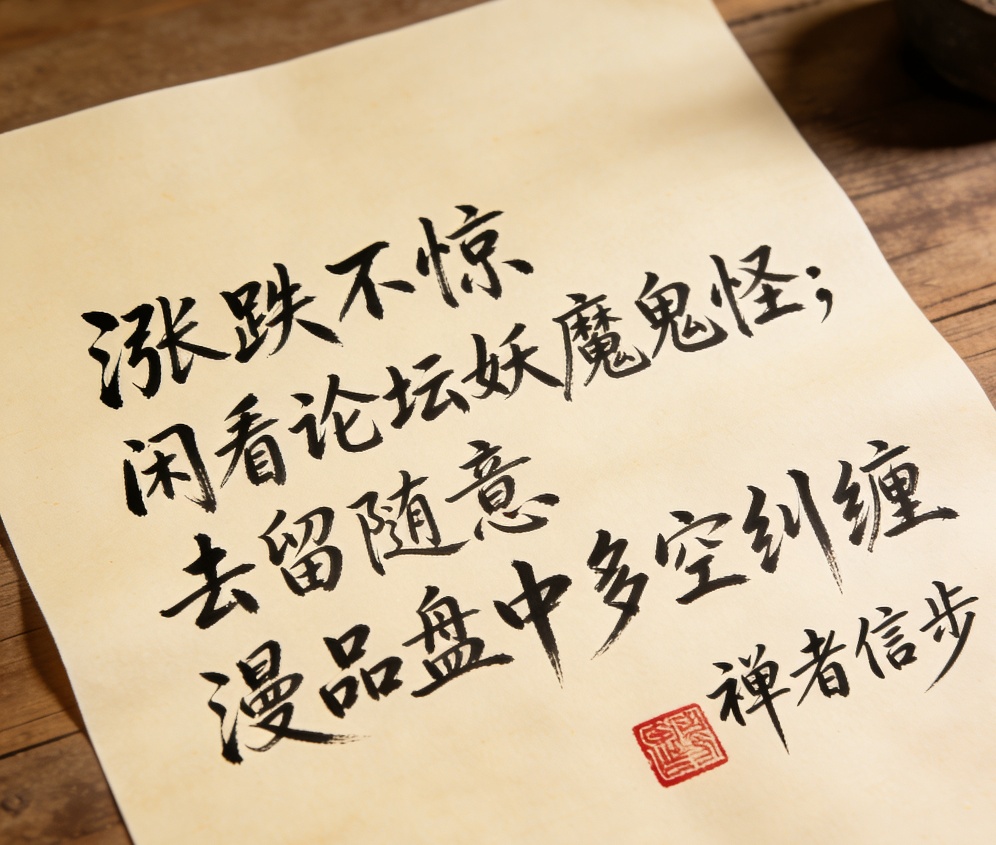 涨跌不惊
闲看论坛妖魔鬼怪；
去留随意
漫品盘中多空纠缠
禅者信步